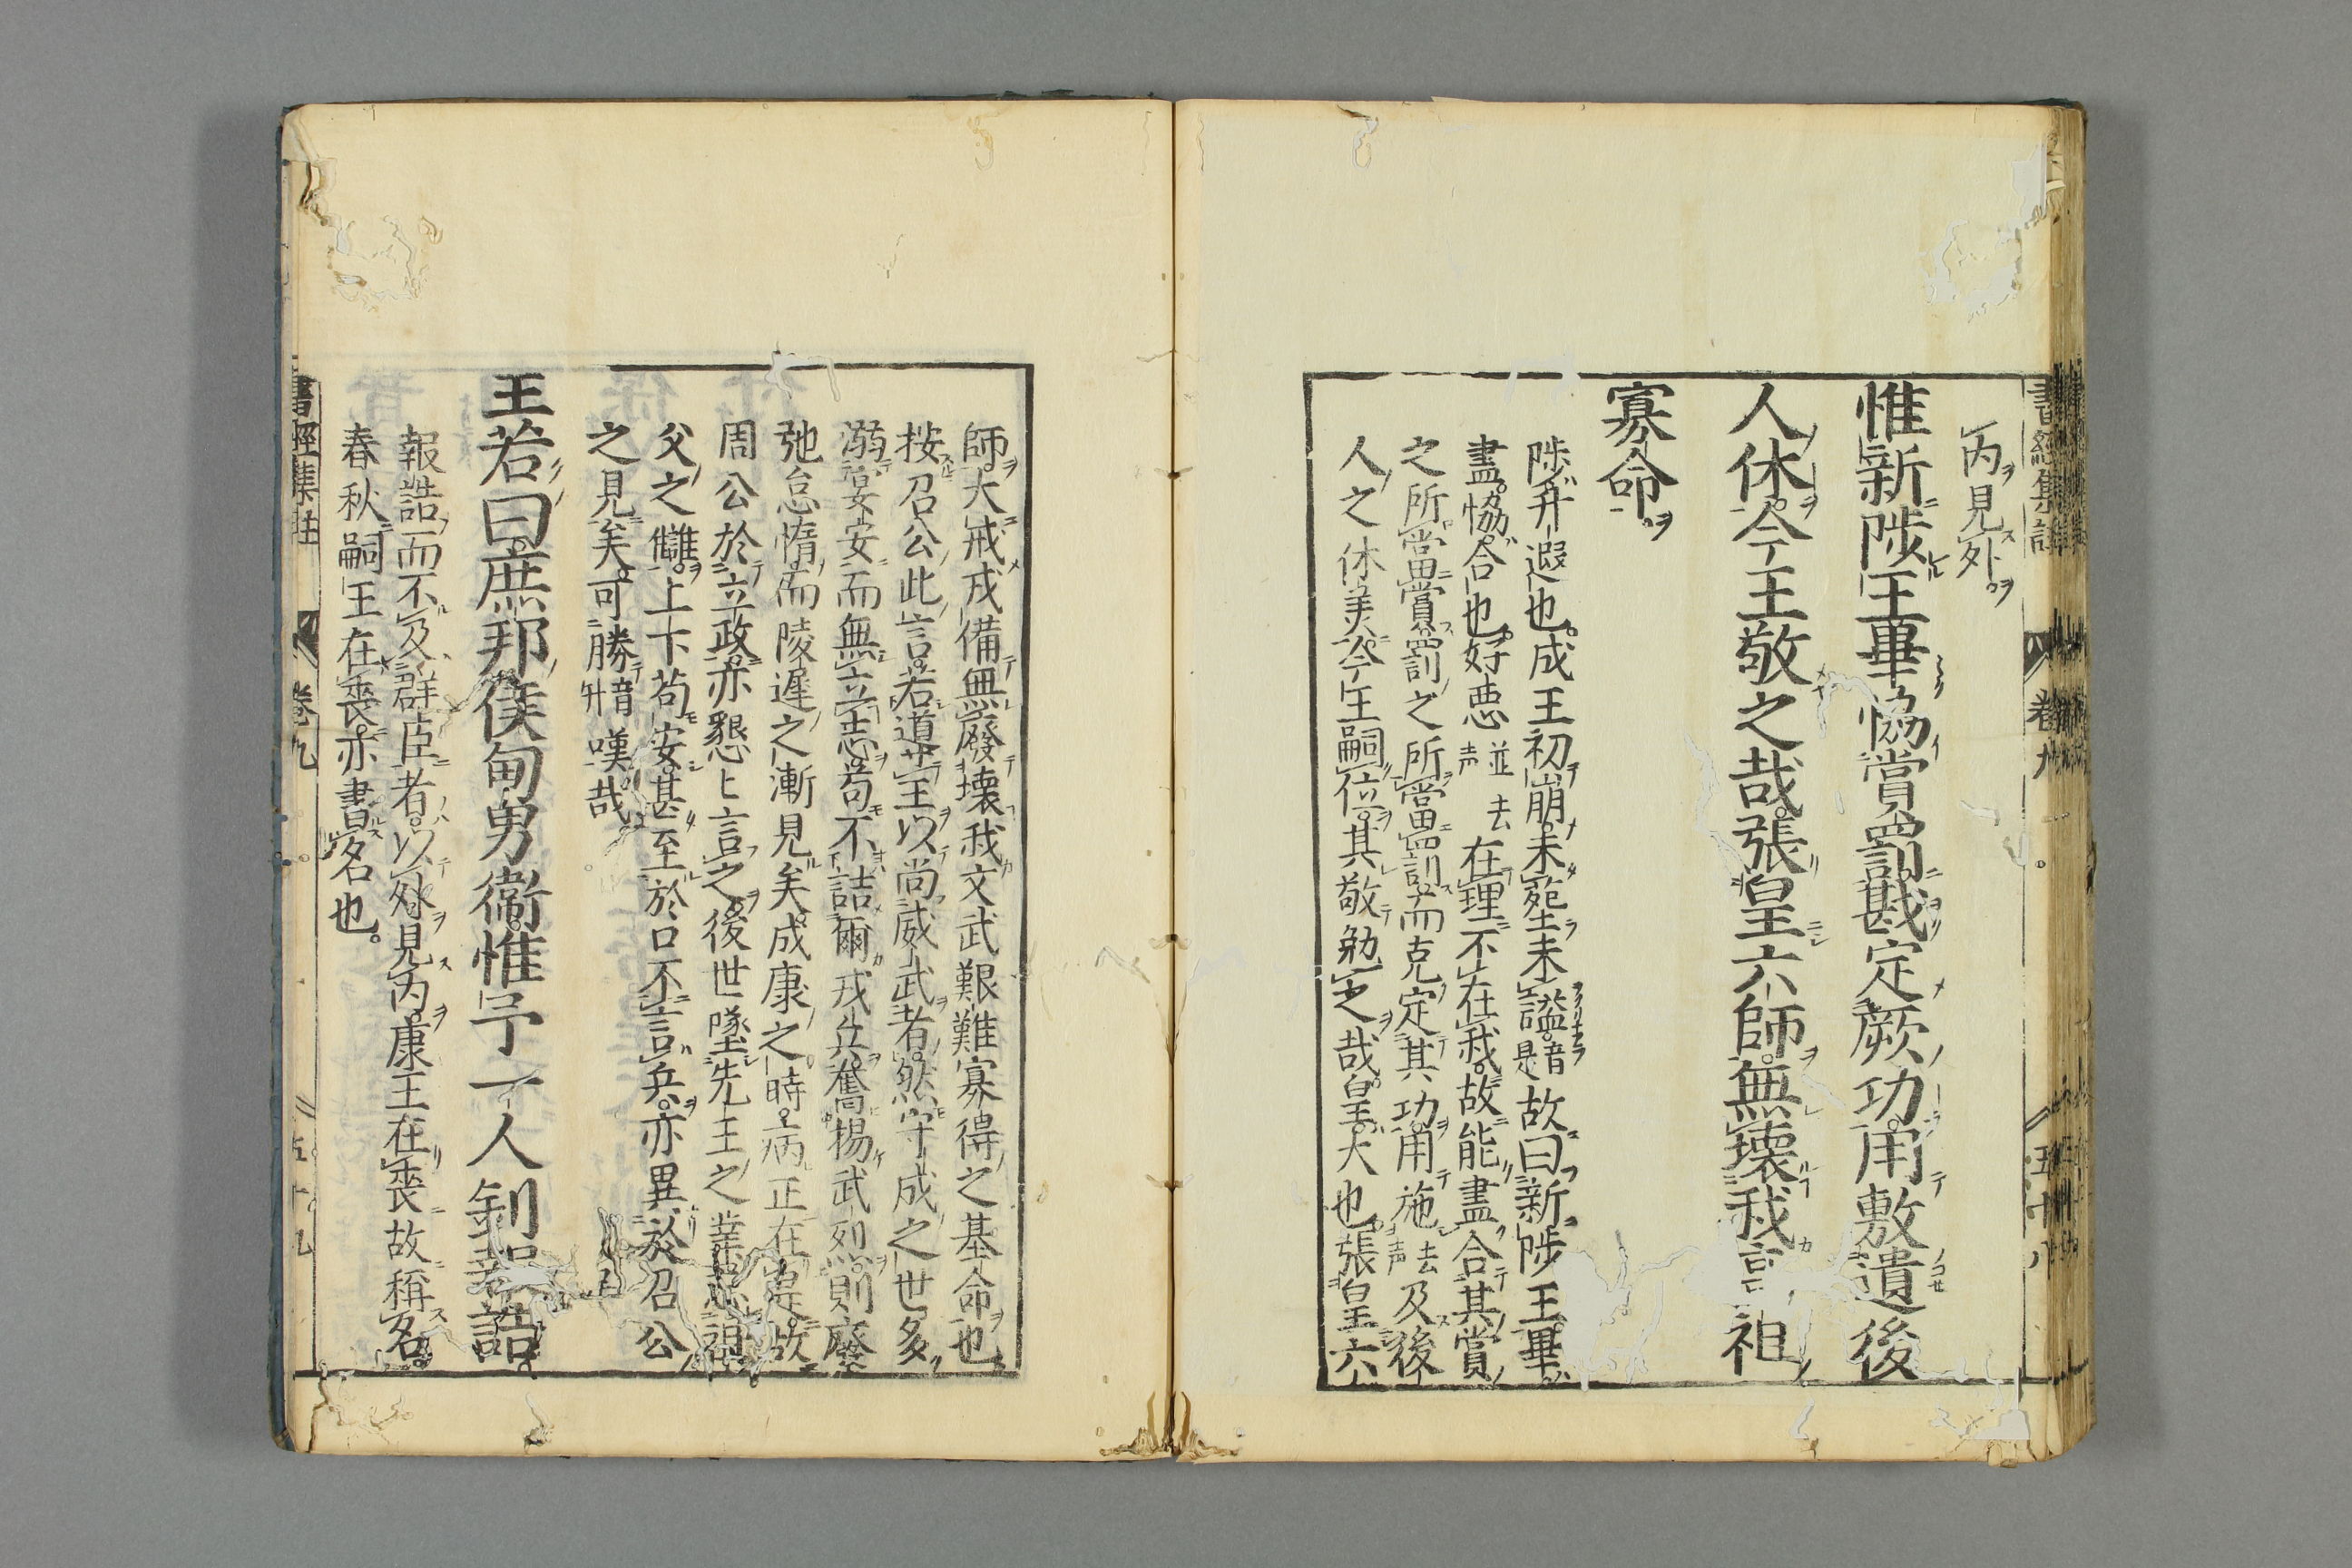 書經集註 卷九 五十八
内見外
惟新陟王畢協賞罰戡定厥功用敷遺後
人休今王敬之哉張皇六師無壞我高祖
寡命
陟升遐也成王初崩未葬未謚音是故曰新陟王畢
盡協合也好惡並去声在理不在我故能盡合其賞
之所當賞罰之所當罰而克定其功用施去声及後
人之休美今王嗣位其敬勉之哉皇大也張皇六
師大戒戎備無廢壞我文武艱難寡得之基命也
按召公此言若導王以尚威武者然守成之世多
溺宴安而無立志苟不詰爾戎兵奮揚武烈則廢
弛怠惰而陵遲之漸見矣成康之時病正在是故
周公於立政亦懇〻言之後世墜先王之業忘祖
父之讎上下苟安甚至於口不言兵亦異於召公
之見矣可勝音升嘆哉
王若曰庶邦侯甸男衛惟予一人釗報誥
報誥而不及群臣者以外見内康王在喪故稱名
春秋嗣王在喪亦書名也
書經集註 卷九 五十九